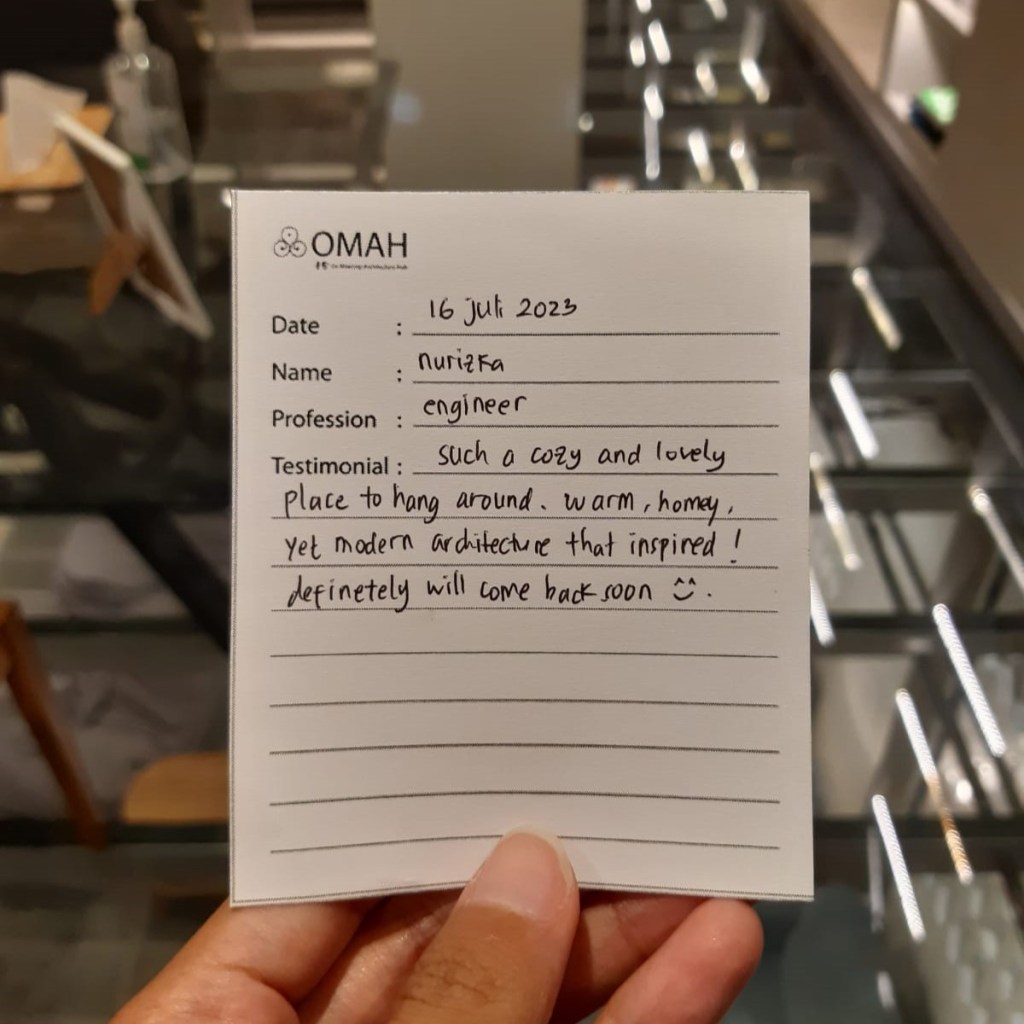 OMAH
Date : 16 juli 2023
Name : nurizka
Profession : engineer
Testimonial : such a cozy and lovely
place to hang around. warm, homey,
yet modern architecture that inspired !
definetely will come back soon ^^.